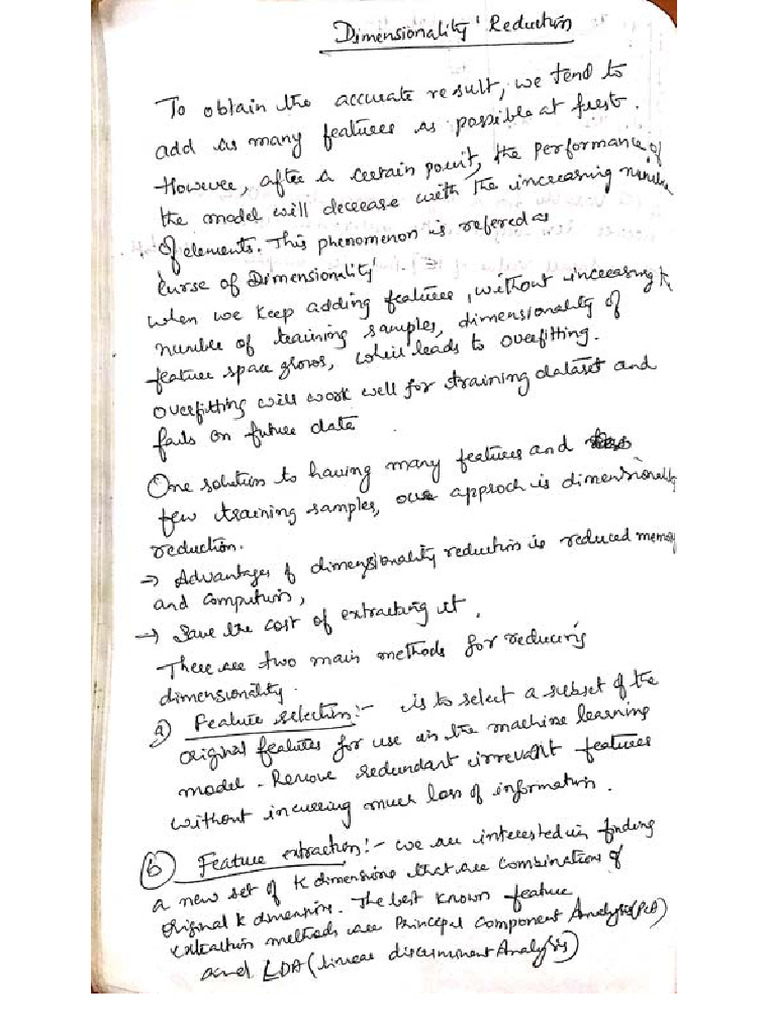 Dimensionality' Reduction
To obtain the accurate result, we tend to
add as many features as possible at first.
However, after a certain point, the performance of
the model will decrease with the increasing number
of elements. This phenomenon is refered as
'curse of Dimensionality'
when we keep adding features, without increasing
number of training samples, dimensionality of
feature space grows, leads to overfitting.
overfitting will work well for training dataset and
fails on future data.
One solution to having many features and
few training samples, our approch is dimensionality
reduction.
→ Advantages of dimensionality reduction is reduced memory
and computers,
→ Save the cost of extracting it.
There are two main methods for reducing
dimensionality.
a) Feature selection:- is to select a subset of the
original features for use in the machine learning
model - Remove redundant features
without incurring much loss of information.
b) Feature extraction:- we are interested in finding
a new set of K dimensions that are combinations of
original k dimensions. The best known feature
extraction methods are Principal Component Analysis (PCA)
and LDA (linear discriminent Analysis)